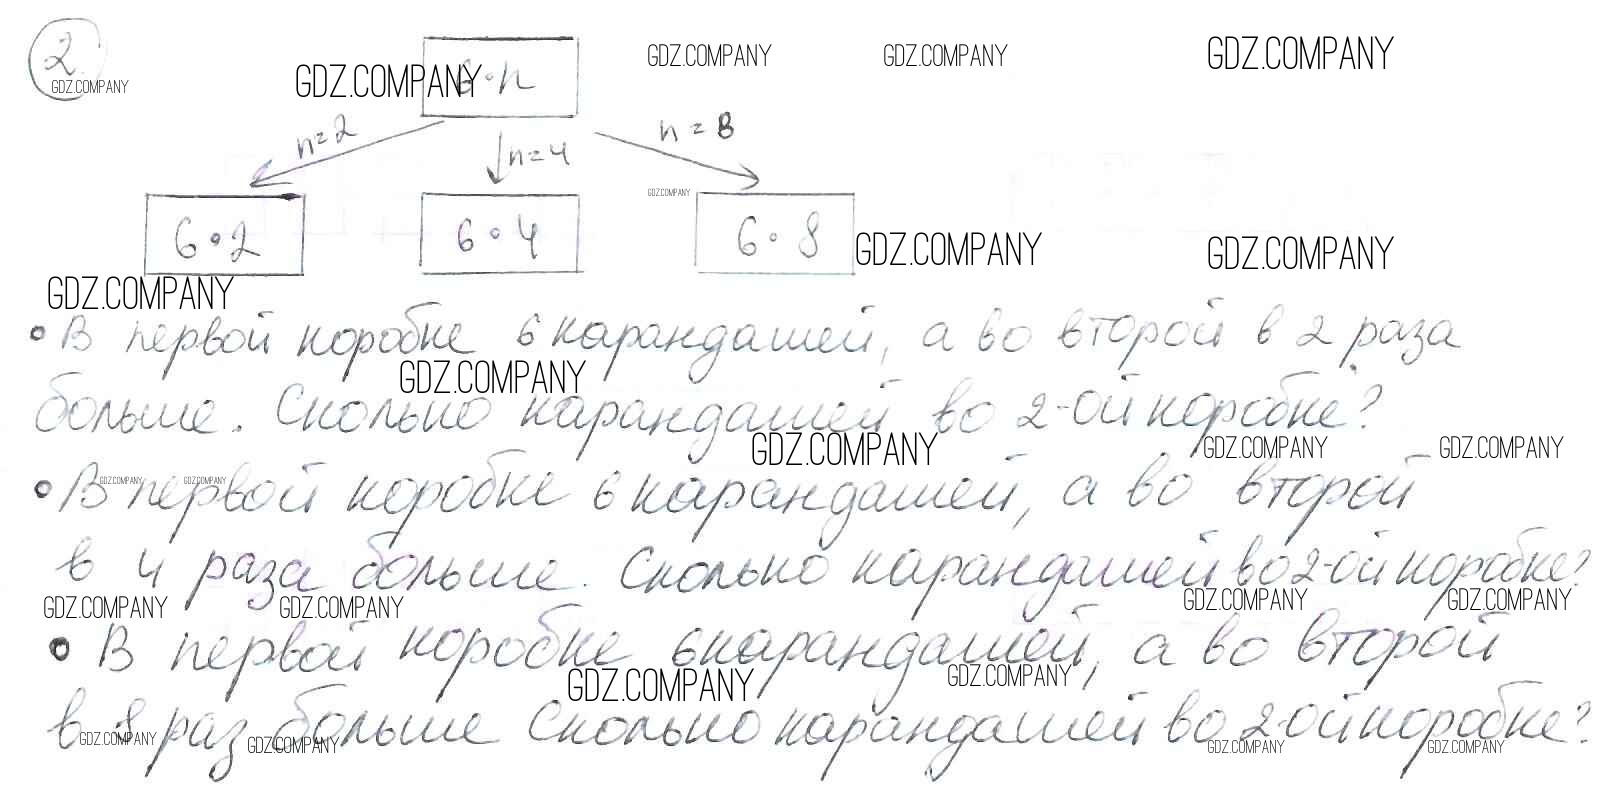 2.
GDZ.COMPANY
GDZ.COMPANY
6·n
GDZ.COMPANY
GDZ.COMPANY
GDZ.COMPANY
n=2
n=4
n=8
GDZ.COMPANY
6·2
6·4
6·8
GDZ.COMPANY
GDZ.COMPANY
GDZ.COMPANY
• В первой коробке 6 карандашей, а во второй в 2 раза
GDZ.COMPANY
больше. Сколько карандашей во 2-ой коробке?
GDZ.COMPANY
GDZ.COMPANY
GDZ.COMPANY
GDZ.COMPANY
GDZ.COMPANY
• В первой коробке 6 карандашей, а во второй
в 4 раза больше. Сколько карандашей во 2-ой коробке?
GDZ.COMPANY
GDZ.COMPANY
GDZ.COMPANY
GDZ.COMPANY
• В первой коробке 6 карандашей, а во второй
GDZ.COMPANY
GDZ.COMPANY
в 8 раз больше Сколько карандашей во 2-ой коробке?
GDZ.COMPANY
GDZ.COMPANY
GDZ.COMPANY
GDZ.COMPANY